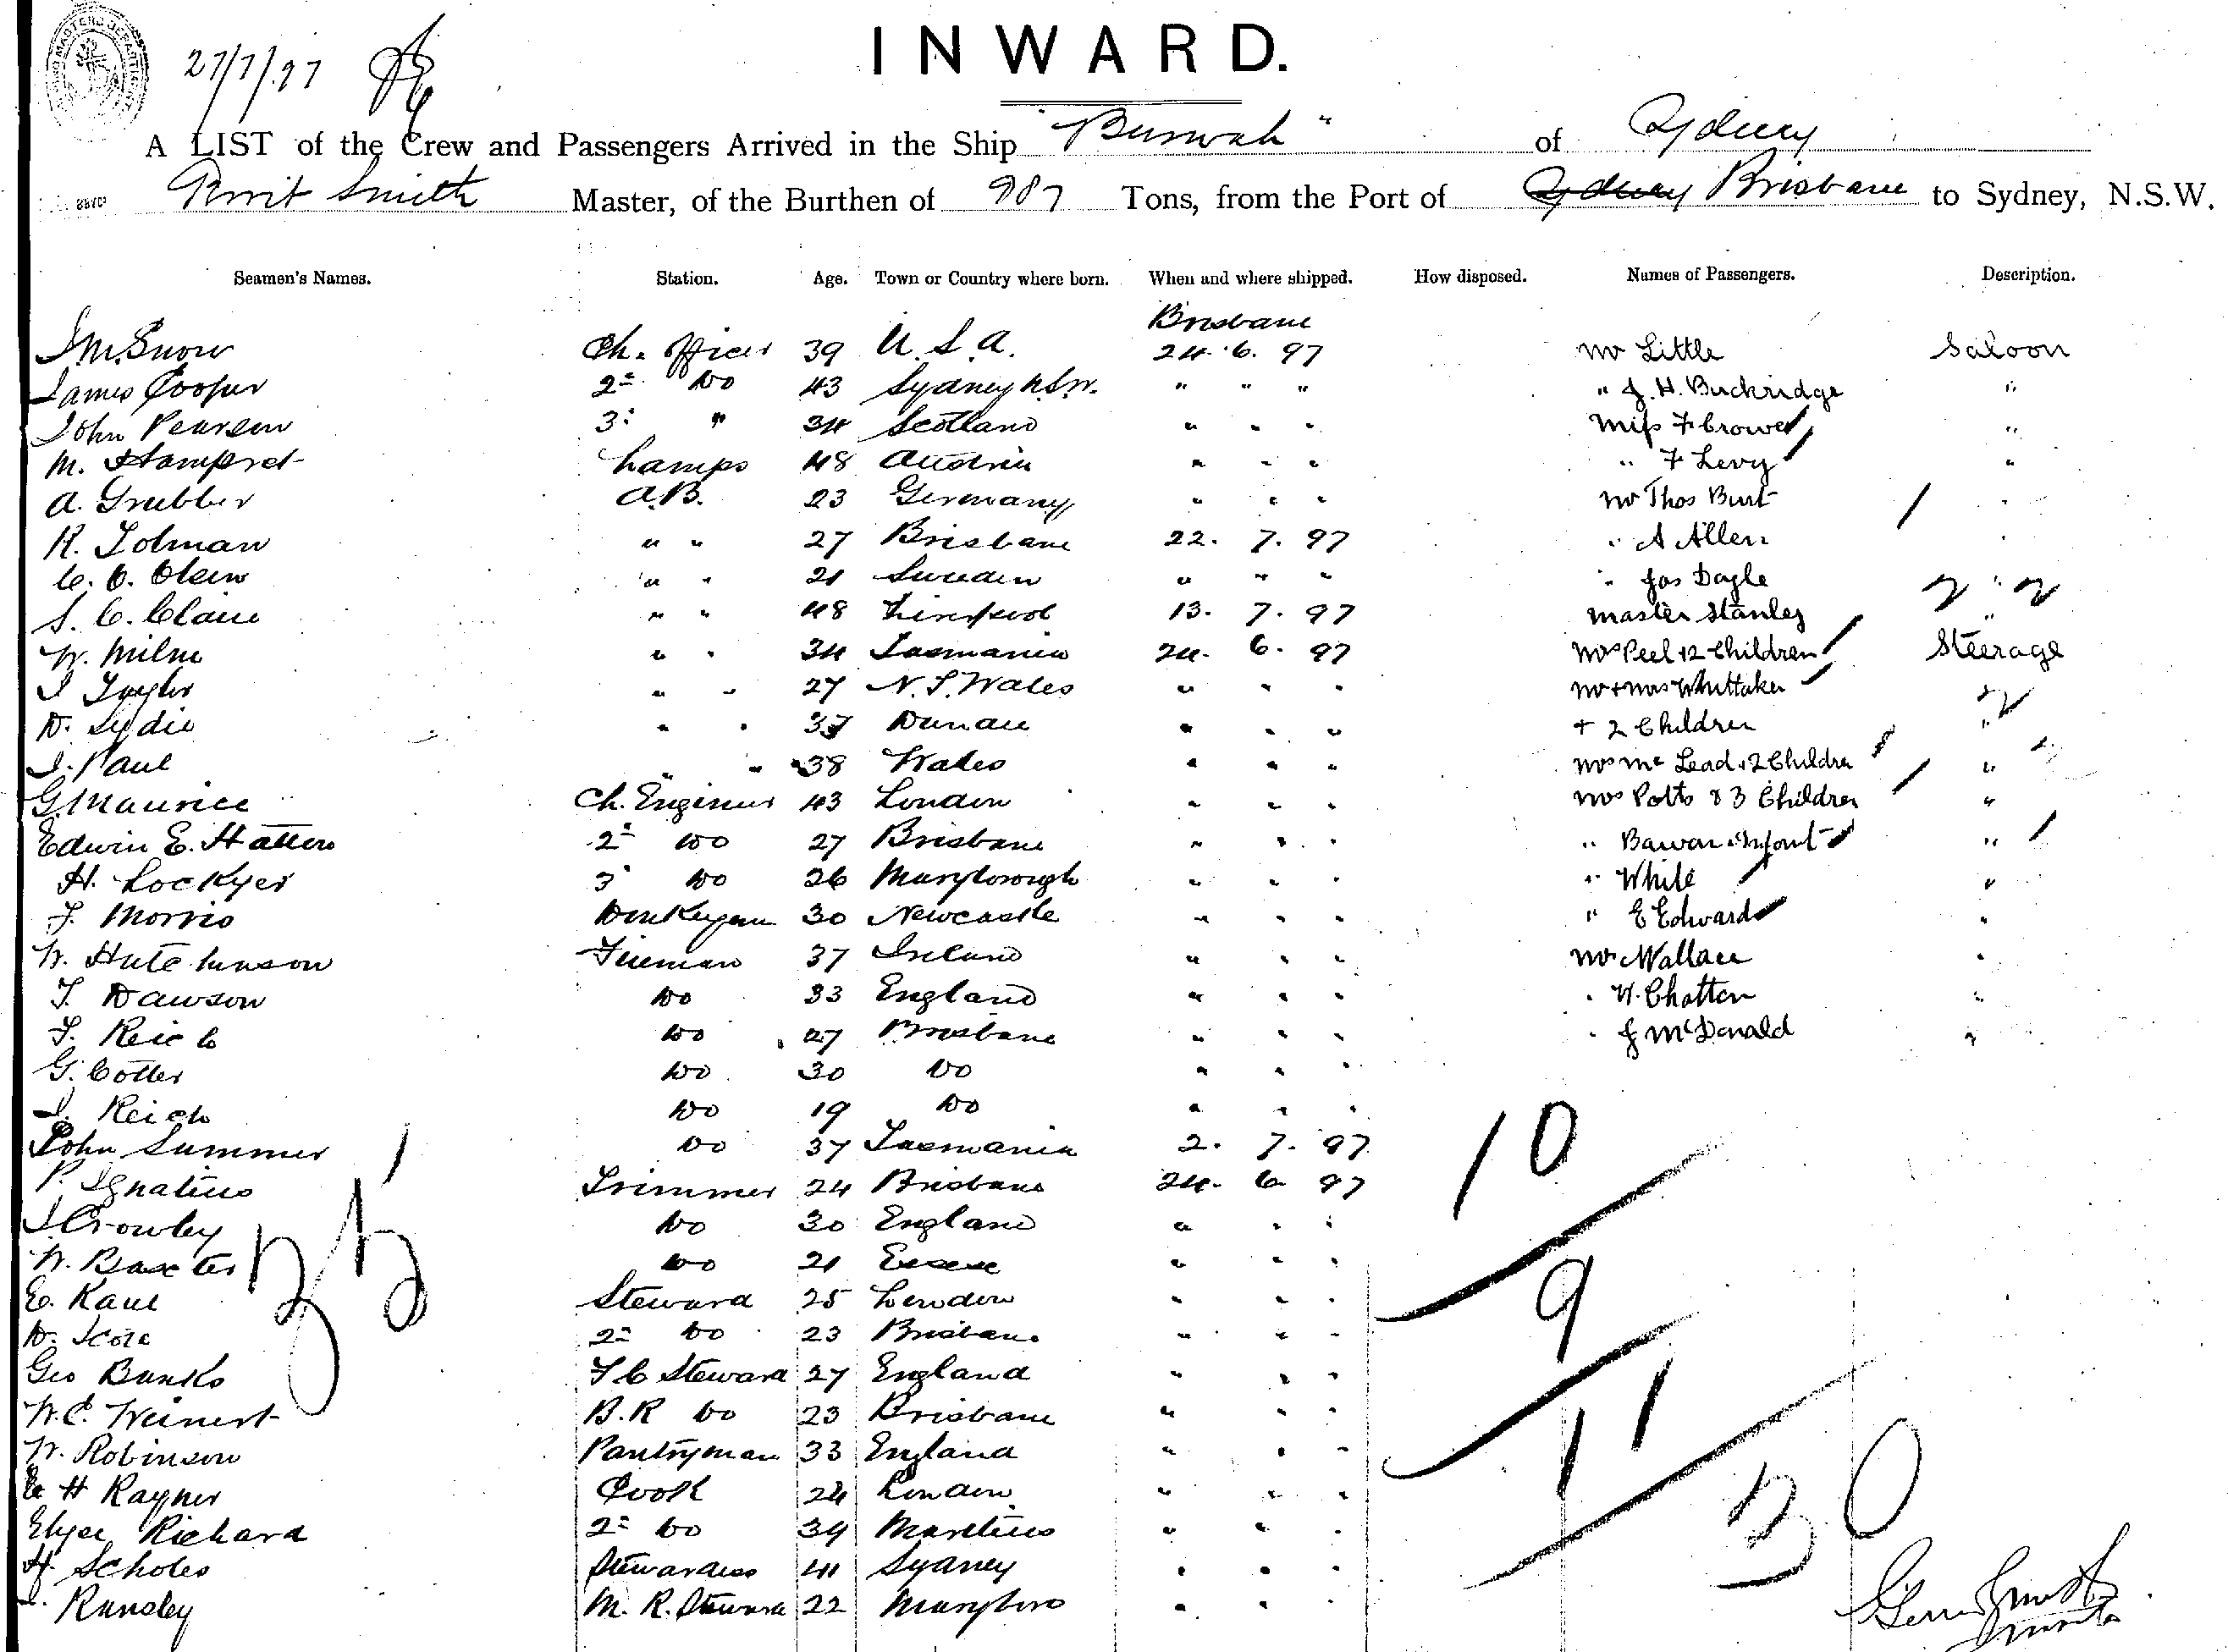 27/7/97
INWARD.
A LIST of the Crew and Passengers Arrived in the Ship "Burwah" of Sydney
Smith Master, of the Burthen of 987 Tons, from the Port of Sydney Brisbane to Sydney, N.S.W.
Seamen's Names. Station. Age. Town or Country where born. When and where shipped. How disposed. Names of Passengers. Description.
Brisbane
J.M. Snow Ch. Officer 39 U.S.A. 24. 6. 97 Mr Little Saloon
James Cooper 2nd Do 43 Sydney N.S.W. " " " " J. H. Buckridge "
John Pearson 3 " 34 Scotland " " " Miss F Crowe "
M. Lamps 48 Austria " " " " F Levy "
A. Grubber A.B. 23 Germany " " " Mr Thos Burt "
R. Tolman " " 27 Brisbane 22. 7. 97 " A Allen "
C. O. Olsen " " 21 Sweden " " " " Jas Doyle "
S. C. Claire " " 48 Liverpool 13. 7. 97 Master Stanley "
W. Milne " " 34 Tasmania 24. 6. 97 Mrs Peel + 2 Children Steerage
J Taylor " " 27 N. S. Wales " " " Mr + Mrs Whittaker
D. " " 37 Dundee " " " + 2 Children "
J. Paul " " 38 Wales " " " Mrs Mc Lead + 2 Childre "
G. Maurice Ch. Engineer 43 London " " " Mrs Potts & 3 Children "
Edwin E. Hatten 2nd Do 27 Brisbane " " " " Infant "
H. Lockyer 3 Do 26 Maryborough " " " " White "
J. Morris Donkeyman 30 Newcastle " " " " E Edwards "
W. Hutchinson Fireman 37 Ireland " " " Mr Wallace "
T. Dawson Do 33 England " " " " W. Chatten "
F. Reich Do 27 Brisbane " " " " J McDonald "
G. Cotter Do 30 Do " " "
J. Reich Do 19 Do " " "
John Summer Do 37 Tasmania 2. 7. 97
P. Ignatius Trimmer 24 Brisbane 24. 6. 97
J Crowley Do 30 England " " "
W. Baxter Do 21 Essex " " "
E. Kaul Steward 25 London " " "
D. 2nd Do 23 Brisbane " " "
Geo Banks F C Steward 27 England " " "
W. C. Weinert B.R Do 23 Brisbane " " "
W. Robinson Pantryman 33 England " " "
H Rayner Cook 24 London " " "
Richard 2nd Do 39 Mauritius " " "
H. Scholes Stewardess 41 Sydney " " "
J. Ransley M. R. Steward 22 Maryboro " " "
35
10
9
11
30